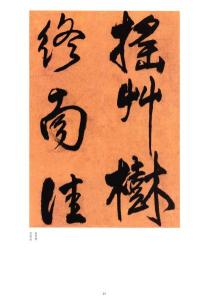 搖艸樹
終南佳